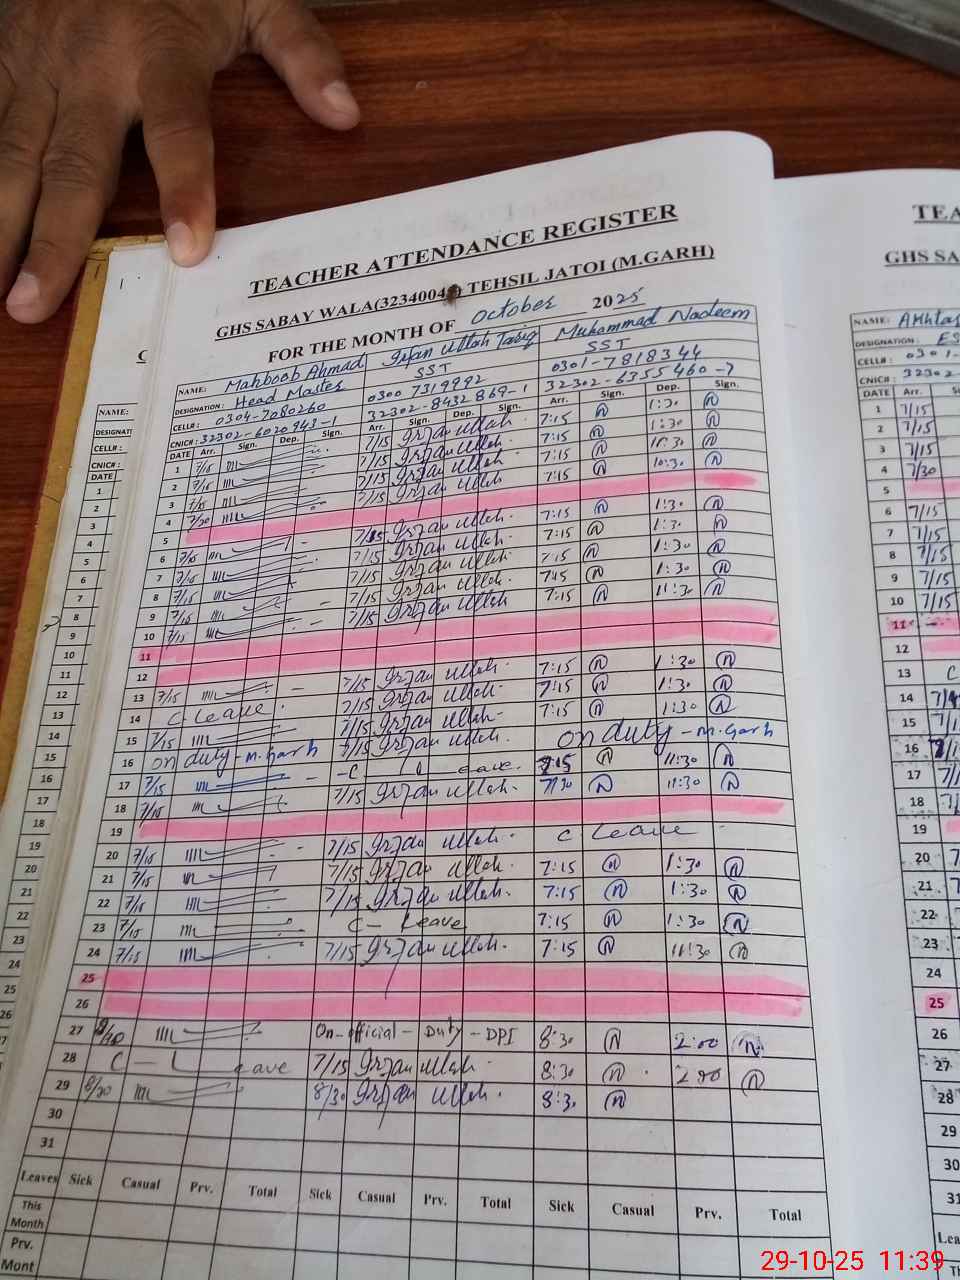 TEACHER ATTENDANCE REGISTER
GHS SABAY WALA(3234004 ) TEHSIL JATOI (M.GARH)
FOR THE MONTH OF October 2025
NAME: Mahboob Ahmad Irfan Ullah Tariq Muhammad Nadeem
DESIGNATION: Head Master SST SST
CELL#: 0304-7080260 0300 7319992 0301-7818344
CNIC#: 32302-6020943-1 32302-8432869-1 32302-6355460-7
DATE Arr. Sign. Dep. Sign. Arr. Sign. Dep. Sign. Arr. Sign. Dep. Sign.
1 7/15 7/15 Irfan Ullah 7:15 1:30
2 7/15 7/15 Irfan Ullah 7:15 1:30
3 7/15 7/15 Irfan Ullah 7:15
4 7/30 7/15 Irfan Ullah 7:15 10:30
5
6 7/15 7/15 Irfan Ullah 7:15 1:30
7 7/15 7/15 Irfan Ullah 7:15 1:30
8 7/15 7/15 Irfan Ullah 7:15 1:30
9 7/15 7/15 Irfan Ullah 7:15 1:30
10 7/15 7/15 Irfan Ullah 7:15 11:30
11
12
13 7/15 7/15 Irfan Ullah 7:15 1:30
14 C-Leave 7/15 Irfan Ullah 7:15 1:30
15 7/15 7/15 Irfan Ullah 7:15 1:30
16 on duty-M.Garh 7/15 Irfan Ullah on duty-M.Garh
17 7/15 -C Leave 7:15 11:30
18 7/15 7/15 Irfan Ullah 7/30 11:30
19
20 7/15 7/15 Irfan Ullah C Leave
21 7/15 7/15 Irfan Ullah 7:15 1:30
22 7/15 7/15 Irfan Ullah 7:15 1:30
23 7/15 C-Leave 7:15 1:30
24 7/15 7/15 Irfan Ullah 7:15 11:30
25
26
27 On-official-Duty-DPI 8:30 2:00
28 C-Leave 7/15 Irfan Ullah 8:30 2:00
29 8/30 8/30 Irfan Ullah 8:30
30
31
Leaves Sick Casual Prv. Total Sick Casual Prv. Total Sick Casual Prv. Total
This Month
Prv. Mont
TEA
GHS SA
NAME: Akhtar
DESIGNATION: ES
CELL#: 0301-
CNIC#: 32302-
DATE Arr.
1 7/15
2 7/15
3 7/15
4 7/30
5
6 7/15
7 7/15
8 7/15
9 7/15
10 7/15
11
12
13 C
14
15
16
17
18
19
20
21
22
23
24
25
26
27
28
29
30
31
Lea
29-10-25 11:39